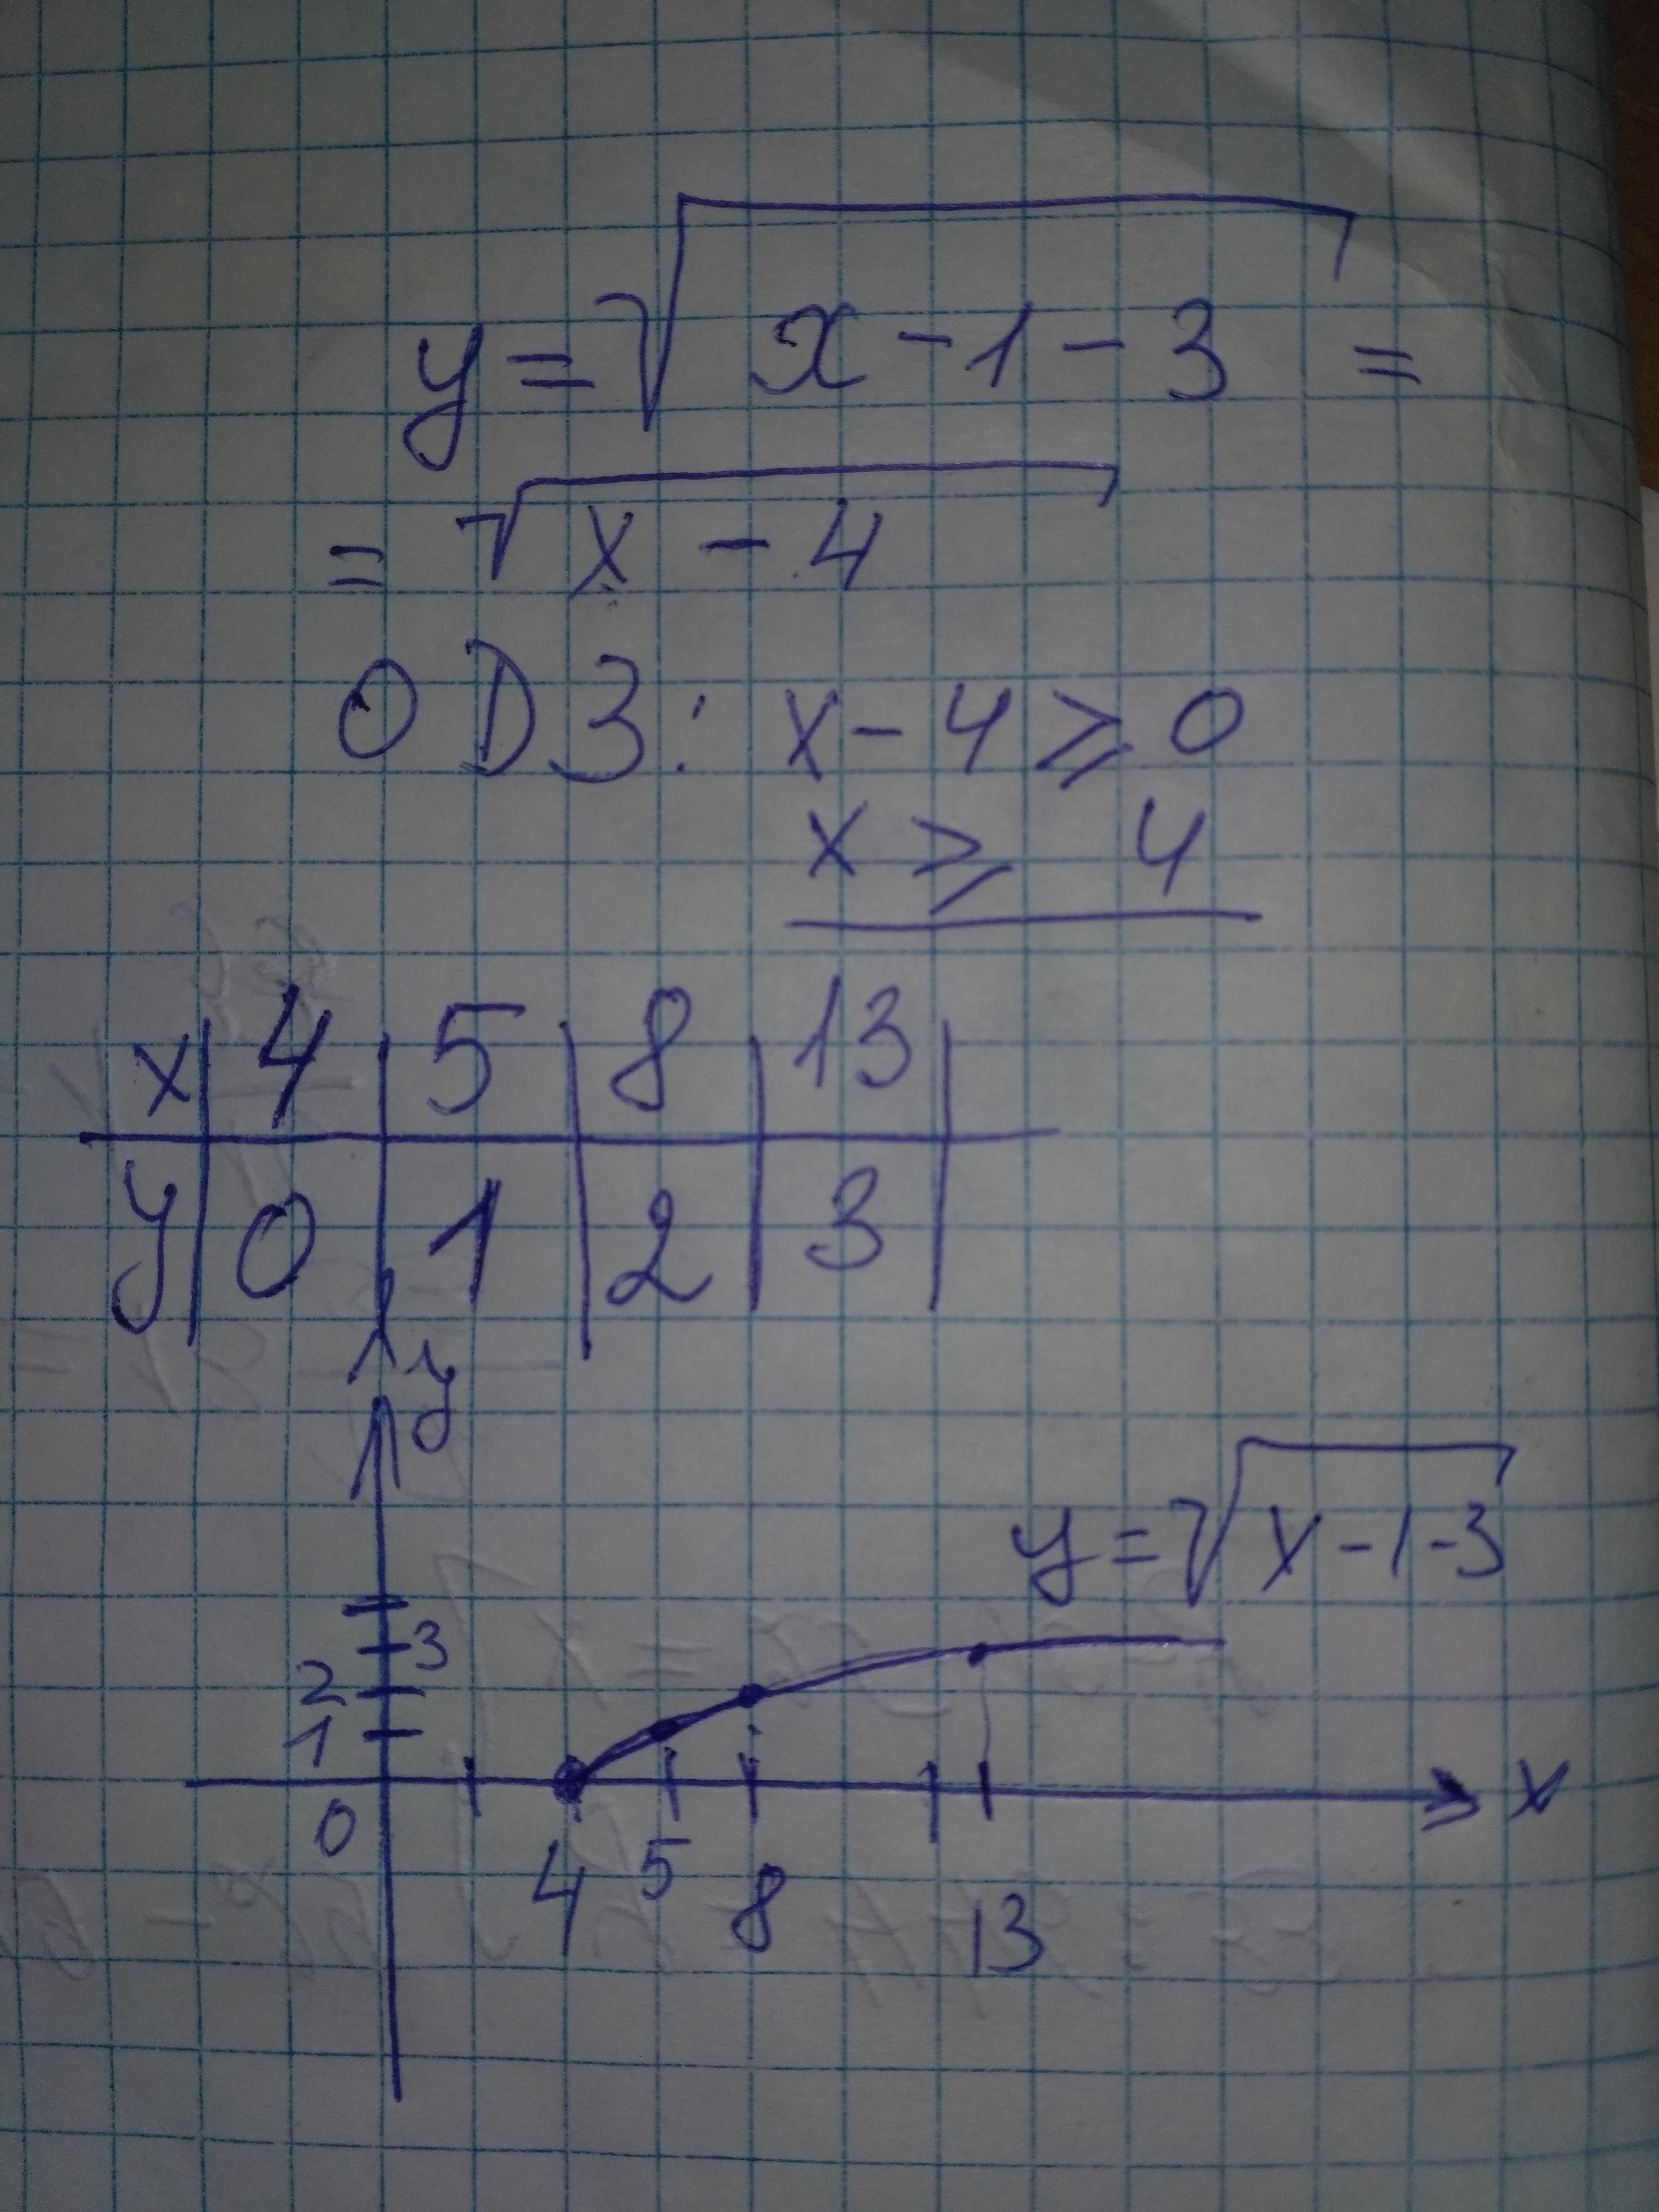 y = √(x - 1 - 3) =
= √(x - 4)
ОDЗ: x - 4 ⩾ 0
x ⩾ 4
x | 4 | 5 | 8 | 13 |
y | 0 | 1 | 2 | 3 |
y
y = √(x - 1 - 3)
3
2
1
0
x
4 5 8 13